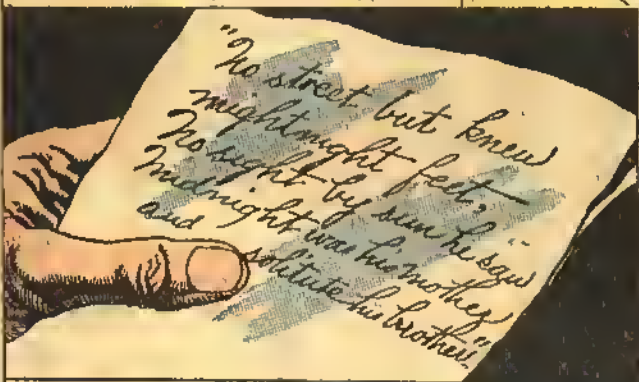 "No street but knew
mightnight feet,
No sight by sun he saw
Midnight was his mother
and solitute his brother."